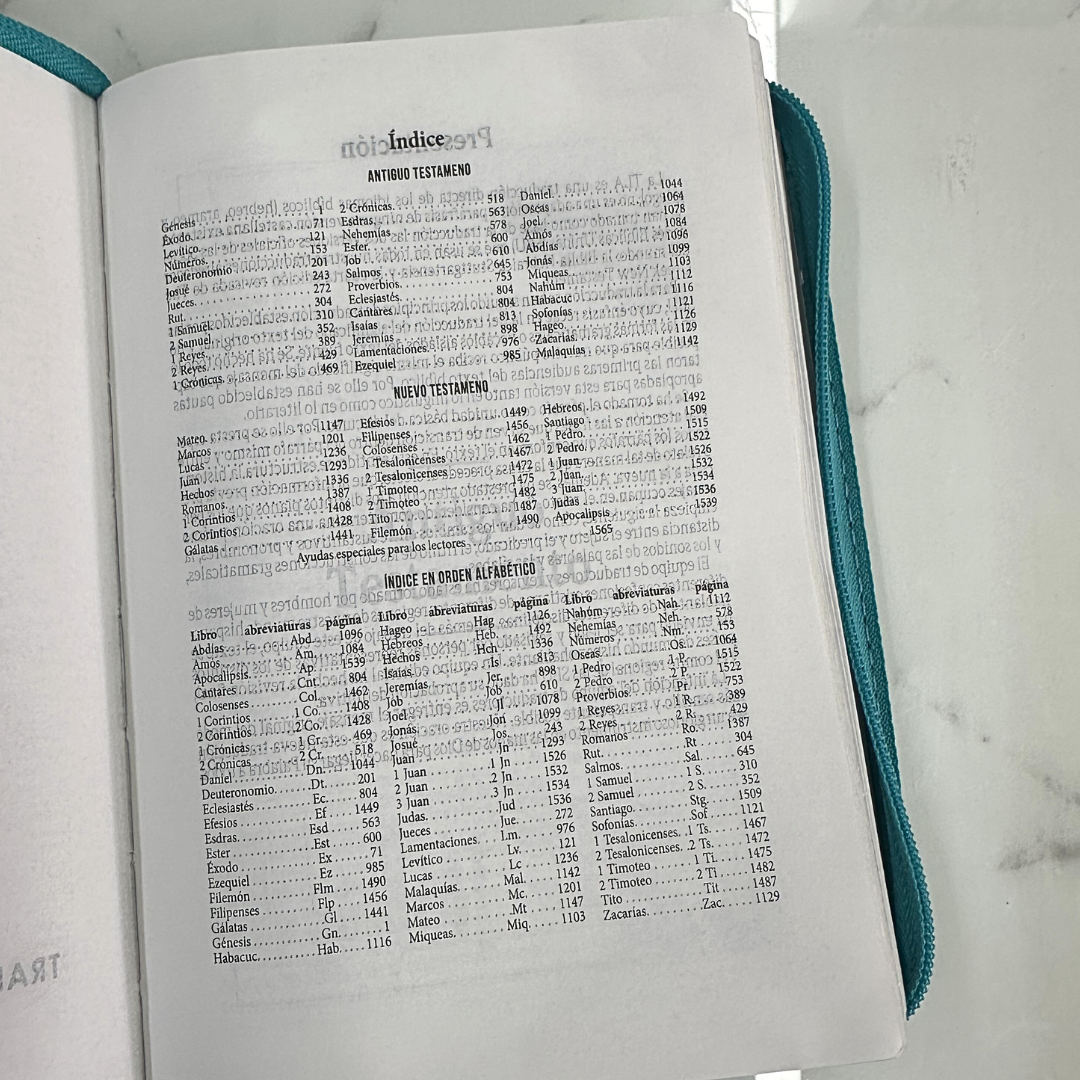 Índice
ANTIGUO TESTAMENO
Génesis 1
Éxodo 71
Levítico 121
Números 153
Deuteronomio 201
Josué 243
Jueces 272
Rut 304
1 Samuel 310
2 Samuel 352
1 Reyes 389
2 Reyes 429
1 Crónicas 469
2 Crónicas 518
Esdras 563
Nehemías 578
Ester 600
Job 610
Salmos 645
Proverbios 753
Eclesiastés 804
Cantares 804
Isaías 813
Jeremías 898
Lamentaciones 976
Ezequiel 985
Daniel 1044
Oseas 1064
Joel 1078
Amós 1084
Abdías 1096
Jonás 1099
Miqueas 1103
Nahúm 1112
Habacuc 1116
Sofonías 1121
Hageo 1126
Zacarías 1129
Malaquías 1142
NUEVO TESTAMENO
Mateo 1147
Marcos 1201
Lucas 1236
Juan 1293
Hechos 1336
Romanos 1387
1 Corintios 1408
2 Corintios 1428
Gálatas 1441
Efesios 1449
Filipenses 1456
Colosenses 1462
1 Tesalonicenses 1467
2 Tesalonicenses 1472
1 Timoteo 1475
2 Timoteo 1482
Tito 1487
Filemón 1490
Hebreos 1492
Santiago 1509
1 Pedro 1515
2 Pedro 1522
1 Juan 1526
2 Juan 1532
3 Juan 1534
Judas 1536
Apocalipsis 1539
Ayudas especiales para los lectores 1565
ÍNDICE EN ORDEN ALFABÉTICO
Libro abreviaturas página
Abdías Abd. 1096
Amós Am. 1084
Apocalipsis Ap. 1539
Cantares Cnt. 804
Colosenses Col. 1462
1 Corintios 1 Co. 1408
2 Corintios 2 Co. 1428
1 Crónicas 1 Cr. 469
2 Crónicas 2 Cr. 518
Daniel Dn. 1044
Deuteronomio Dt. 201
Eclesiastés Ec. 804
Efesios Ef 1449
Esdras Esd 563
Ester Est 600
Éxodo Ex 71
Ezequiel Ez 985
Filemón Flm 1490
Filipenses Flp 1456
Gálatas Gl 1441
Génesis Gn. 1
Habacuc Hab. 1116
Libro abreviaturas página
Hageo Hag 1126
Hebreos Heb. 1492
Hechos Hch 1336
Isaías Is 813
Jeremías Jer. 898
Job Job 610
Joel Jl 1078
Jonás Jon 1099
Josué Jos. 243
Juan Jn 1293
1 Juan 1 Jn 1526
2 Juan 2 Jn 1532
3 Juan 3 Jn 1534
Judas Jud 1536
Jueces Jue. 272
Lamentaciones Lm. 976
Levítico Lv. 121
Lucas Lc 1236
Malaquías Mal. 1142
Marcos Mc. 1201
Mateo Mt 1147
Miqueas Miq. 1103
Libro abreviaturas página
Nahúm Nah. 1112
Nehemías Neh. 578
Números Nm. 153
Oseas Os. 1064
1 Pedro 1 P. 1515
2 Pedro 2 P. 1522
Proverbios Pr. 753
1 Reyes 1 R. 389
2 Reyes 2 R. 429
Romanos Ro. 1387
Rut Rt 304
Salmos Sal. 645
1 Samuel 1 S. 310
2 Samuel 2 S. 352
Santiago Stg. 1509
Sofonías Sof 1121
1 Tesalonicenses 1 Ts. 1467
2 Tesalonicenses 2 Ts. 1472
1 Timoteo 1 Ti. 1475
2 Timoteo 2 Ti 1482
Tito Tit 1487
Zacarías Zac. 1129